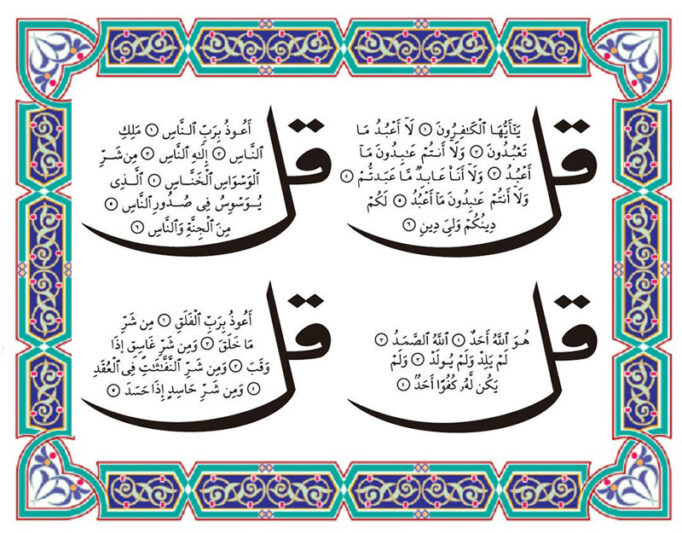 قل
يَٰٓأَيُّهَا ٱلْكَٰفِرُونَ ١ لَآ أَعْبُدُ مَا
تَعْبُدُونَ ٢ وَلَآ أَنتُمْ عَٰبِدُونَ مَآ
أَعْبُدُ ٣ وَلَآ أَنَا۠ عَابِدٌ مَّا عَبَدتُّمْ ٤
وَلَآ أَنتُمْ عَٰبِدُونَ مَآ أَعْبُدُ ٥ لَكُمْ
دِينُكُمْ وَلِىَ دِينِ ٦
قل
أَعُوذُ بِرَبِّ ٱلنَّاسِ ١ مَلِكِ
ٱلنَّاسِ ٢ إِلَٰهِ ٱلنَّاسِ ٣ مِن شَرِّ
ٱلْوَسْوَاسِ ٱلْخَنَّاسِ ٤ ٱلَّذِى
يُوَسْوِسُ فِى صُدُورِ ٱلنَّاسِ ٥
مِنَ ٱلْجِنَّةِ وَٱلنَّاسِ ٦
قل
هُوَ ٱللَّهُ أَحَدٌ ١ ٱللَّهُ ٱلصَّمَدُ ٢
لَمْ يَلِدْ وَلَمْ يُولَدْ ٣ وَلَمْ
يَكُن لَّهُۥ كُفُوًا أَحَدٌۢ ٤
قل
أَعُوذُ بِرَبِّ ٱلْفَلَقِ ١ مِن شَرِّ
مَا خَلَقَ ٢ وَمِن شَرِّ غَاسِقٍ إِذَا
وَقَبَ ٣ وَمِن شَرِّ ٱلنَّفَّٰثَٰتِ فِى ٱلْعُقَدِ
٤ وَمِن شَرِّ حَاسِدٍ إِذَا حَسَدَ ٥